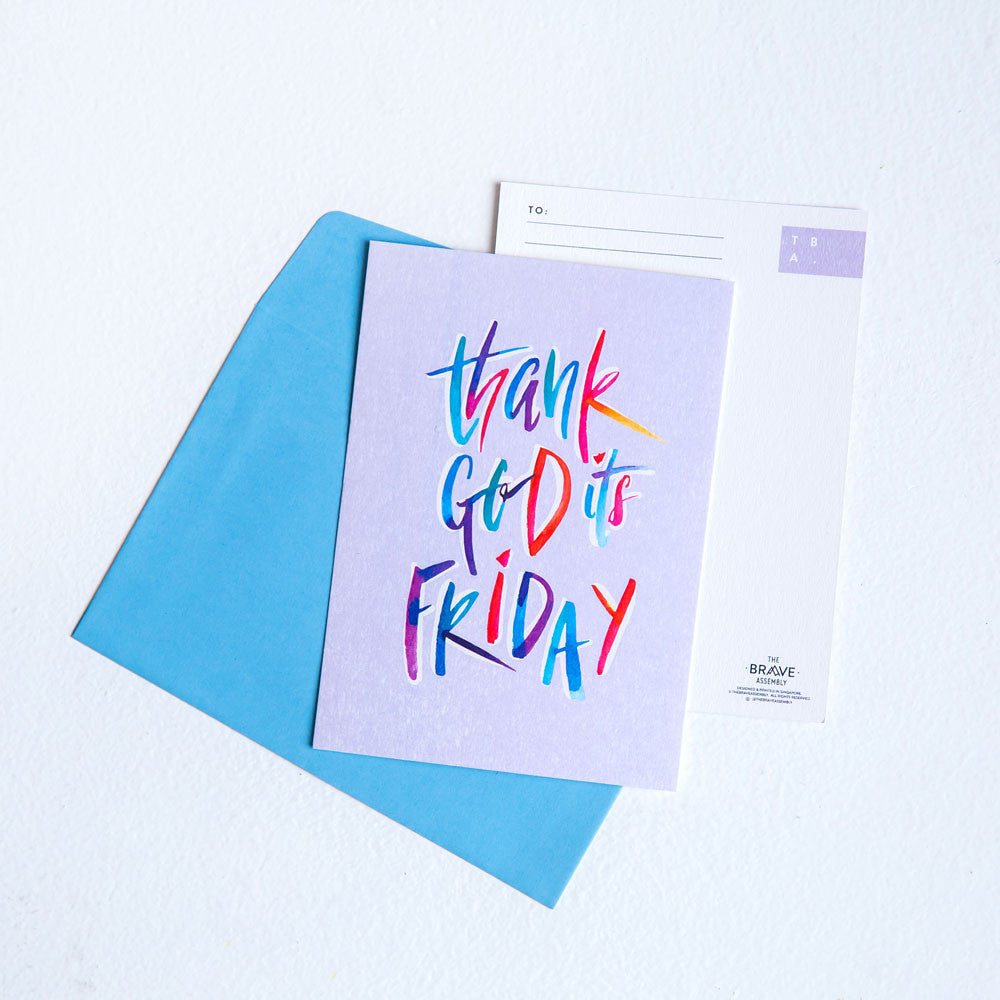 thank
GOD it's
FRIDAY
TO:
T B
A .
THE
BRAVE
ASSEMBLY
DESIGNED & PRINTED IN SINGAPORE.
©THEBRAVEASSEMBLY. ALL RIGHTS RESERVED.
@THEBRAVEASSEMBLY